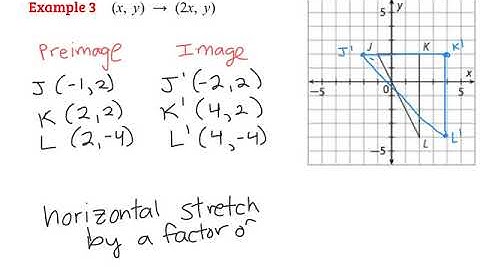 Example 3 (x, y) → (2x, y)
Preimage Image
J (-1,2) J'(-2,2)
K (2,2) K'(4,2)
L (2,-4) L'(4,-4)
horizontal stretch
by a factor o
5 y
J' J K K'
x
-5 0 5
L L'
-5